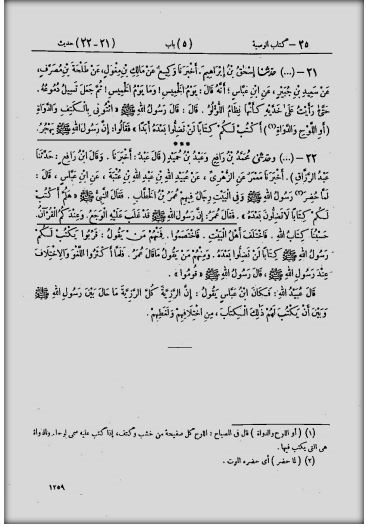 ٢٥ – كتاب الوصية (٥) باب (٢١-٢٢) حديث
٢١ – (...) حدثنا إسحٰق بن إبراهيم. أخبرنا وكيع عن مالك بن مغول، عن طلحة بن مصرف،
عن سعيد بن جبير، عن ابن عباس؛ أنه قال: يوم الخميس! وما يوم الخميس! ثم جعل تسيل دموعه.
حتى رأيت على خديه كأنها نظام اللؤلؤ. قال: قال رسول الله ﷺ « ائتوني بالكتف والدواة
(أو اللوح والدواة(١)) أكتب لكم كتابا لن تضلوا بعده أبدا » فقالوا: إن رسول الله ﷺ يهجر.
***
٢٢ – (...) وحدثني محمد بن رافع وعبد بن حميد (قال عبد: أخبرنا. وقال ابن رافع: حدثنا
عبد الرزاق). أخبرنا معمر عن الزهري، عن عبيد الله بن عبد الله بن عتبة، عن ابن عباس، قال:
لما حضر(٢) رسول الله ﷺ وفي البيت رجال فيهم عمر بن الخطاب. فقال النبي ﷺ « هلم أكتب
لكم كتابا لا تضلون بعده ». فقال عمر: إن رسول الله ﷺ قد غلب عليه الوجع. وعندكم القرآن.
حسبنا كتاب الله. فاختلف أهل البيت. فاختصموا. فمنهم من يقول: قربوا يكتب لكم
رسول الله ﷺ كتابا لن تضلوا بعده. ومنهم من يقول ما قال عمر. فلما أكثروا اللغو والاختلاف
عند رسول الله ﷺ، قال رسول الله ﷺ « قوموا ».
قال عبيد الله: فكان ابن عباس يقول: إن الرزية كل الرزية ما حال بين رسول الله ﷺ
وبين أن يكتب لهم ذلك الكتاب، من اختلافهم ولغطهم.
(١) (أو اللوح والدواة) قال في المصباح: اللوح كل صفيحة من خشب وكتف، إذا كتب عليه سمى لوحا. والدواة
هي التي يكتب فيها.
(٢) (لما حضر) أي حضره الموت.
١٢٥٩